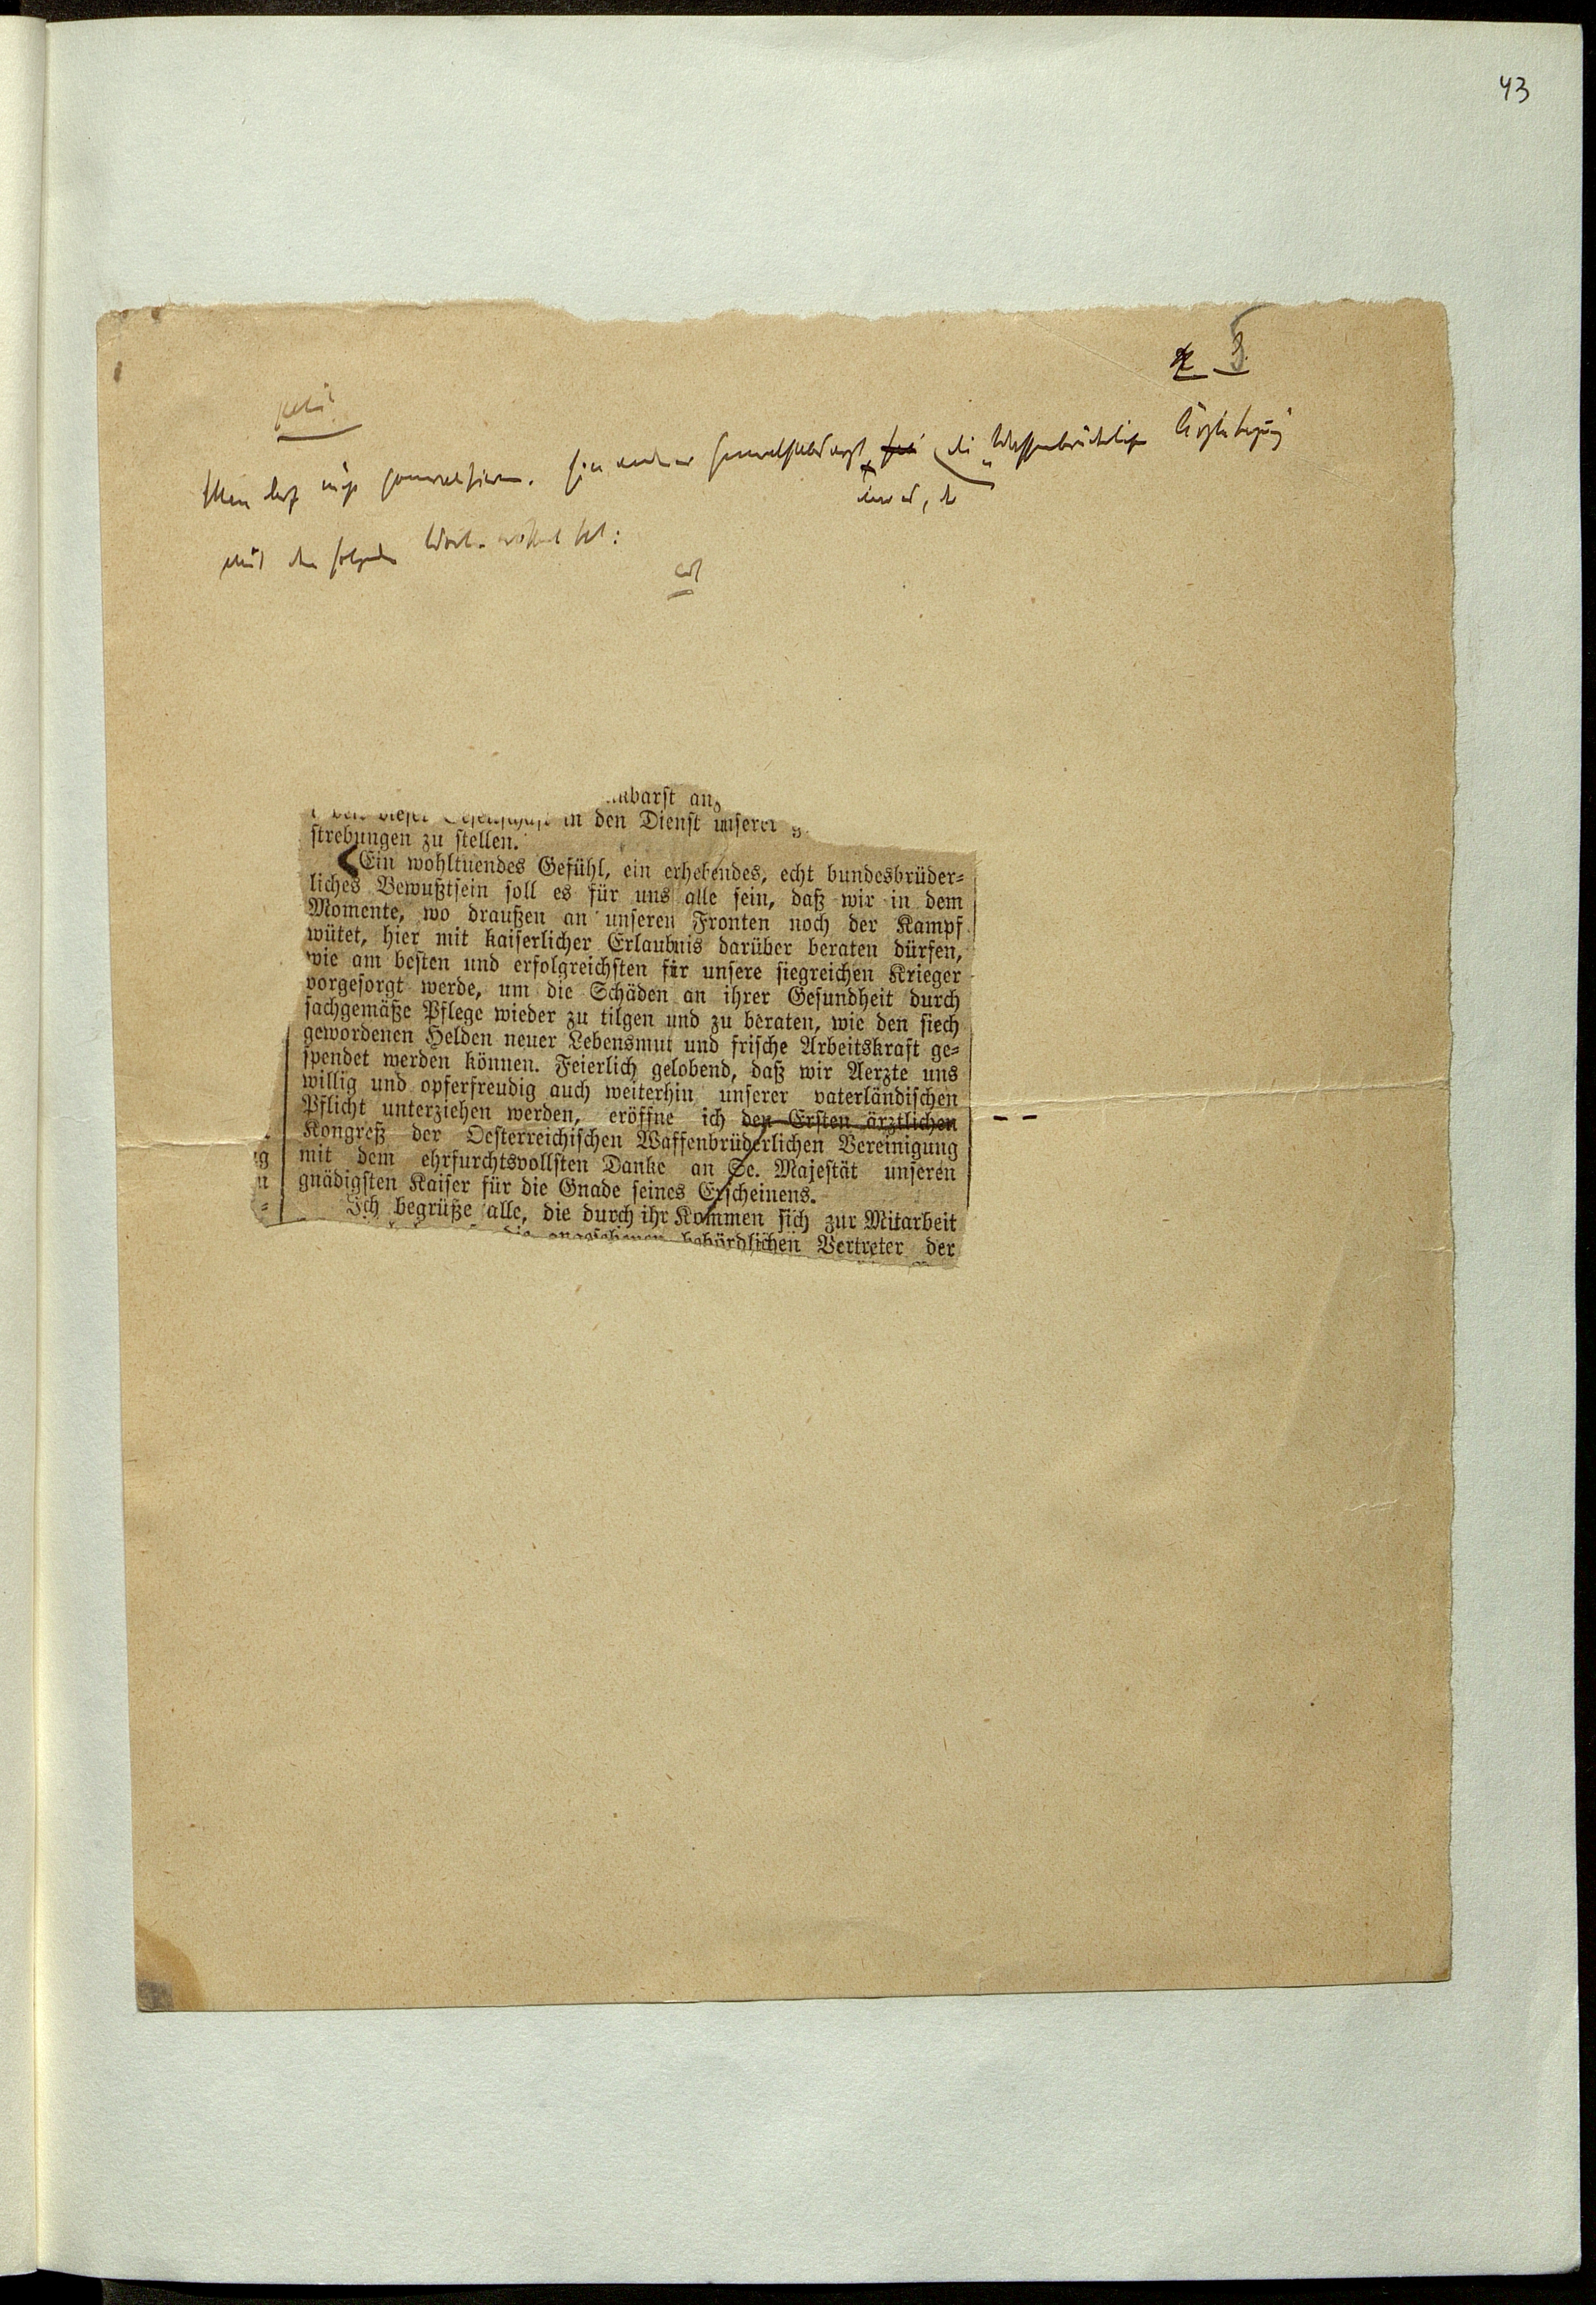 43
3.
Man darf nicht generalisieren. Ein anderer Generalstabsarzt die „Waffenbrüderliche Ärztetagung"
mit den folgenden Worten eröffnet hat:
nbarst an
in den Dienst unserer
strebungen zu stellen.
Ein wohltuendes Gefühl, ein erhebendes, echt bundesbrüder-
liches Bewußtsein soll es für uns alle sein, daß wir in dem
Momente, wo draußen an unseren Fronten noch der Kampf
wütet, hier mit kaiserlicher Erlaubnis darüber beraten dürfen,
wie am besten und erfolgreichsten für unsere siegreichen Krieger
vorgesorgt werde, um die Schäden an ihrer Gesundheit durch
sachgemäße Pflege wieder zu tilgen und zu beraten, wie den siech
gewordenen Helden neuer Lebensmut und frische Arbeitskraft ge-
spendet werden können. Feierlich gelobend, daß wir Aerzte uns
willig und opferfreudig auch weiterhin unserer vaterländischen
Pflicht unterziehen werden, eröffne ich den Ersten ärztlichen – –
Kongreß der Oesterreichischen Waffenbrüderlichen Vereinigung
mit dem ehrfurchtsvollsten Danke an Se. Majestät unseren
gnädigsten Kaiser für die Gnade seines Erscheinens.
Ich begrüße alle, die durch ihr Kommen sich zur Mitarbeit
die angesehenen behördlichen Vertreter der